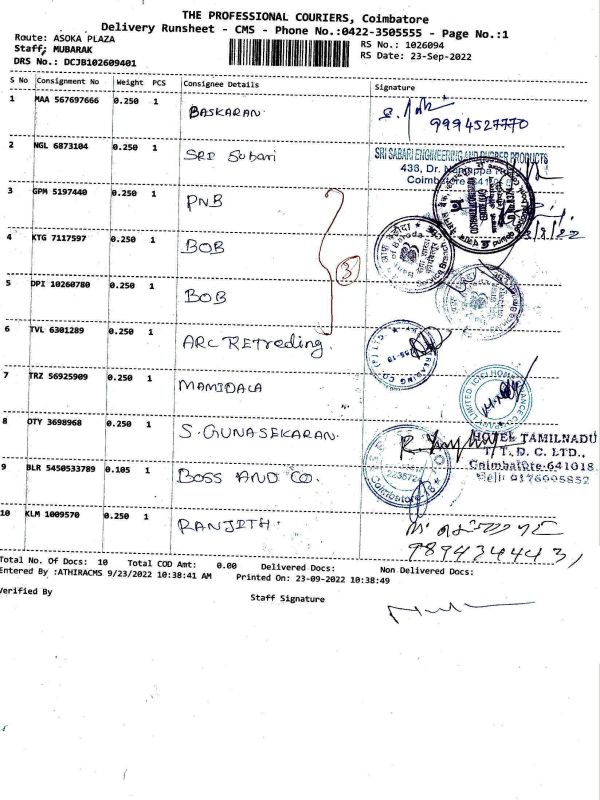 THE PROFESSIONAL COURIERS, Coimbatore
Delivery Runsheet - CMS - Phone No.:0422-3505555 - Page No.:1
Route: ASOKA PLAZA
RS No.: 1026094
Staff: MUBARAK
RS Date: 23-Sep-2022
DRS No.: DCJB102609401
S No Consignment No Weight PCS Consignee Details Signature
1 MAA 567697666 0.250 1 BASKARAN
9994527770
2 NGL 6873104 0.250 1 SRI Sabari
SRI SABARI ENGINEERING AND RUBBER PRODUCTS
436, Dr.
3 GPM 5197440 0.250 1 PNB
4 KTG 7117597 0.250 1 BOB
3
5 DPI 10260780 0.250 1 BOB
6 TVL 6301289 0.250 1 ARC RETreding
7 TRZ 56925909 0.250 1 MAMIDALA
8 OTY 3698968 0.250 1 S. GUNASEKARAN.
HOTEL TAMILNADU
T. T. D. C. LTD.,
Coimbatore-641018
9 BLR 5450533789 0.105 1 BOSS AND CO.
Coimbatore
10 KLM 1009570 0.250 1 RANJITH.
9894344431
Total No. Of Docs: 10 Total COD Amt: 0.00 Delivered Docs: Non Delivered Docs:
Entered By :ATHIRACMS 9/23/2022 10:38:41 AM Printed On: 23-09-2022 10:38:49
Verified By
Staff Signature